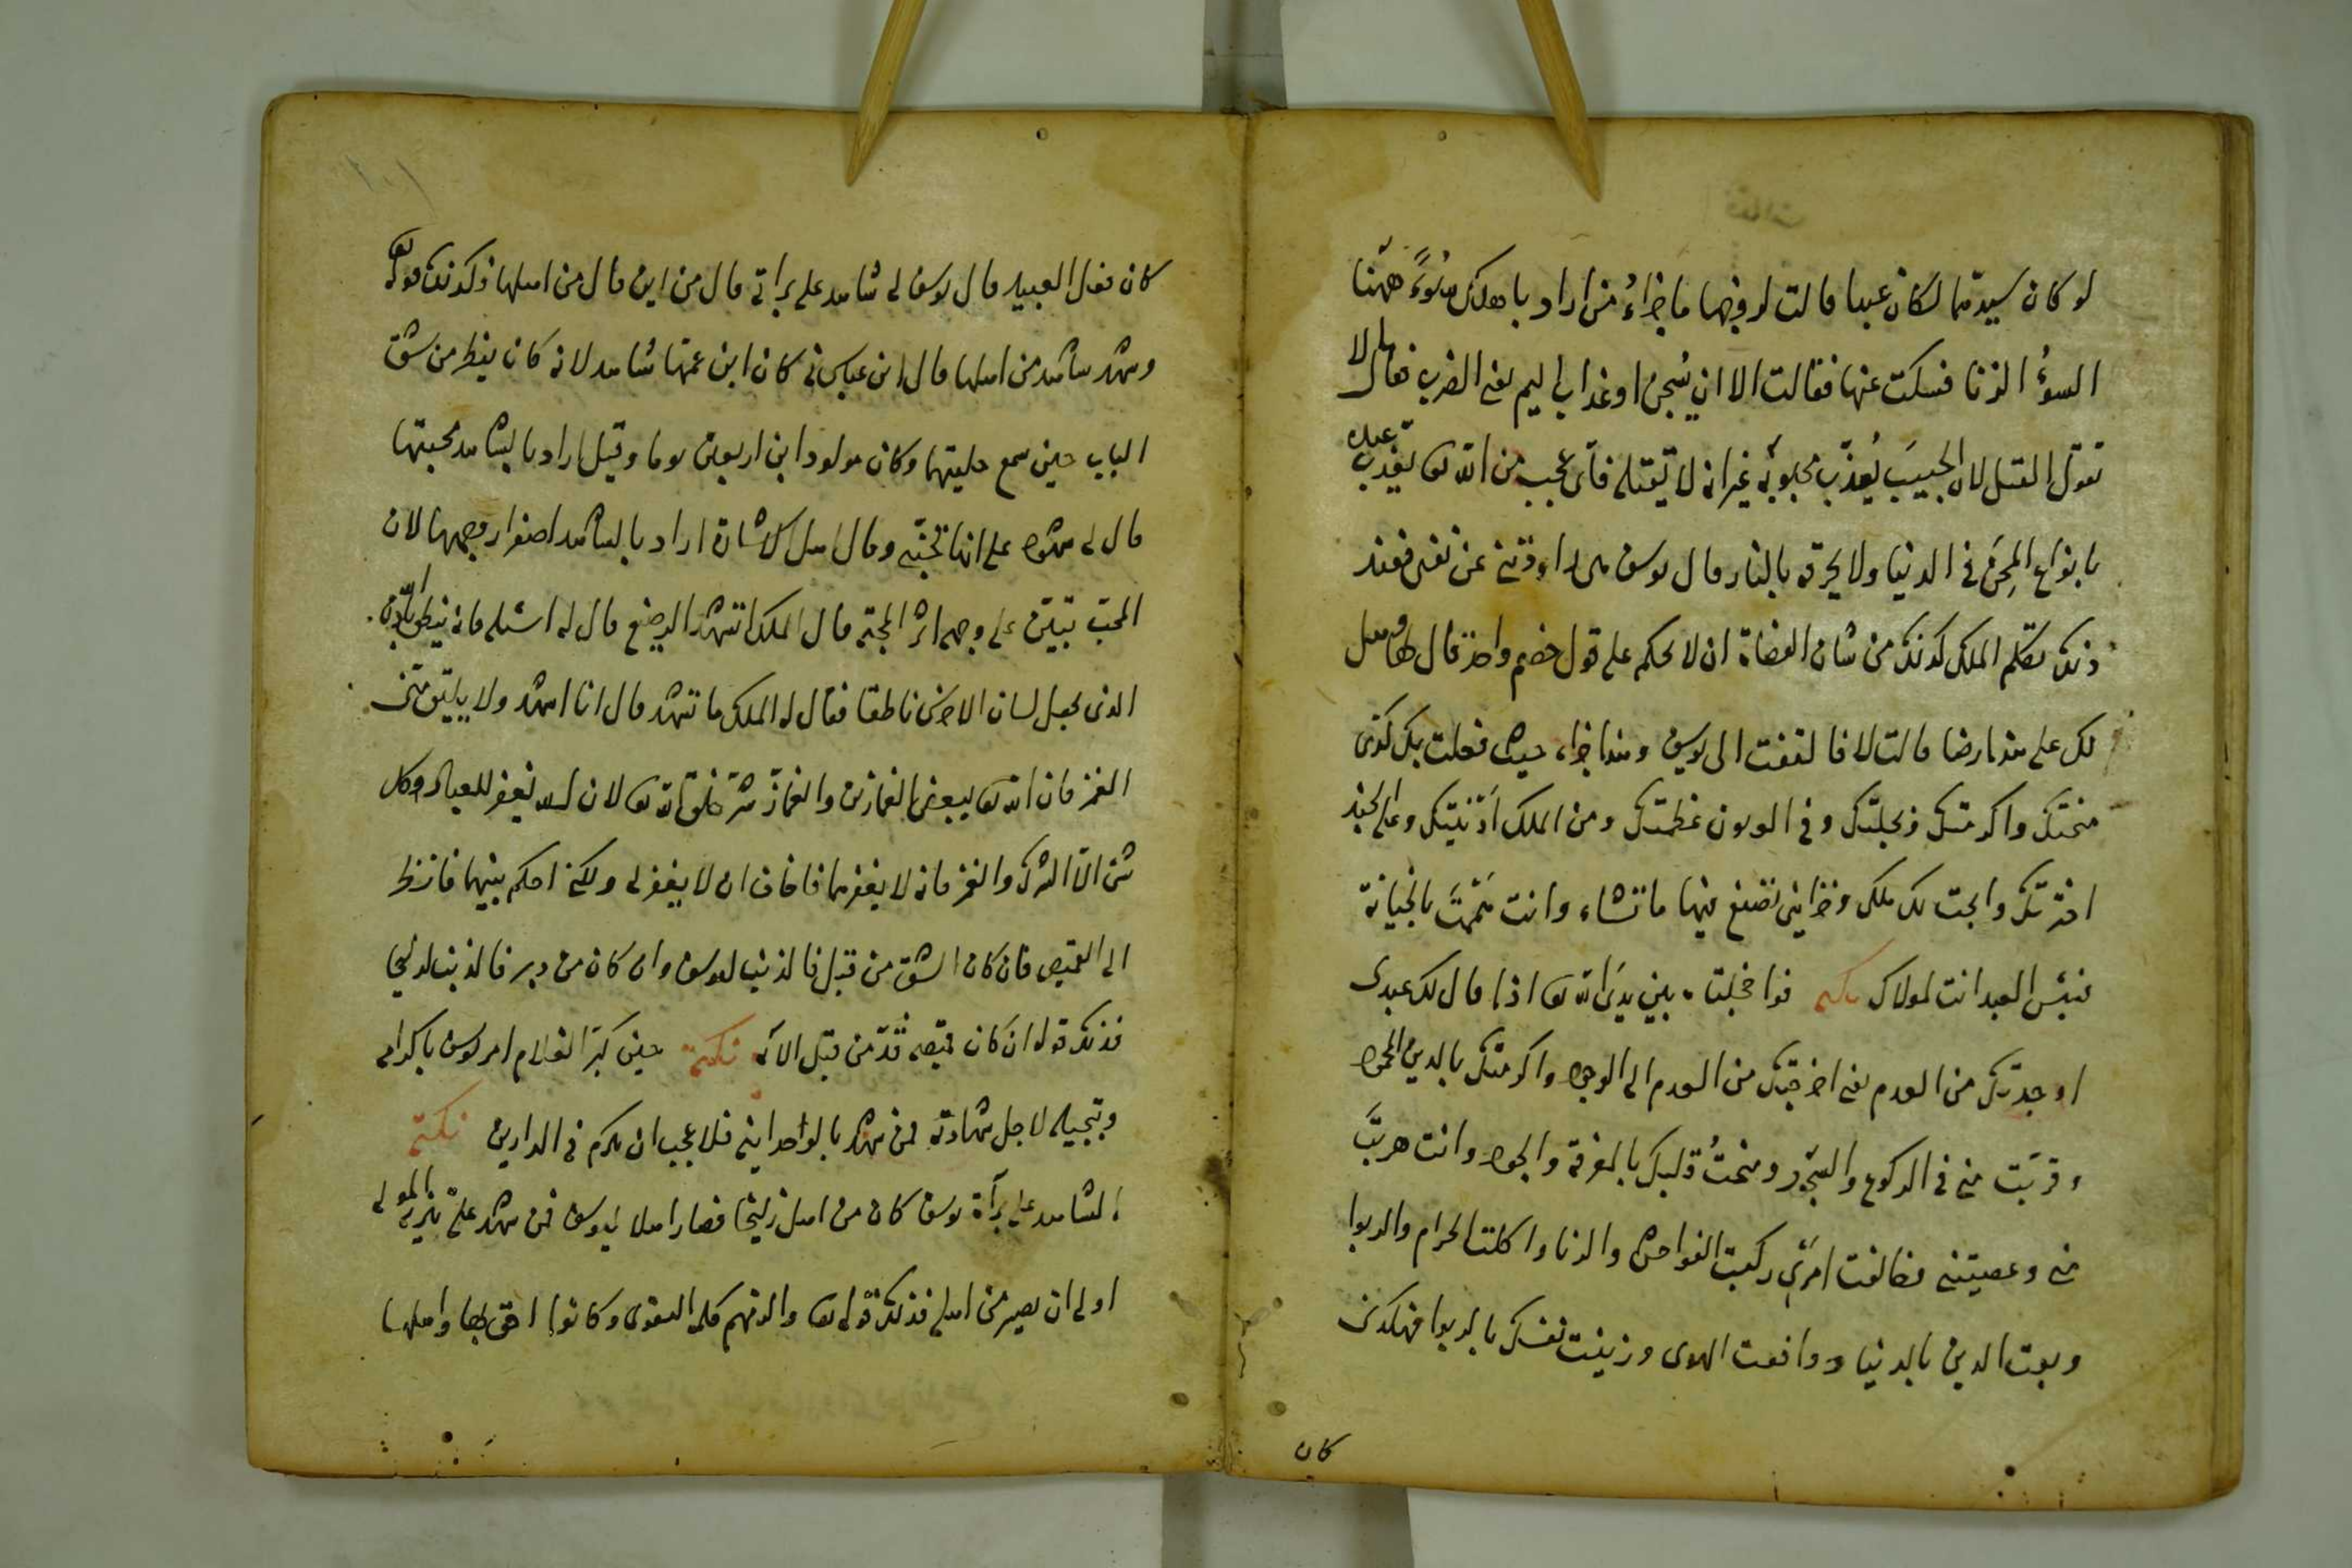 لو كان سيدهما لكان عبدا قالت لزوجها ما جزاءُ من اراد باهلك سُوءً ههنا
السوءُ الزنا فسكت عنها فقالت الا ان يُسجن او عذاب اليم يعنى الضرب فقال لا
تقول القتل لان الحبيبَ يُعذّب محبوبه غير انه لا يَقتله فاى عجب من الله تعالى يعذّب عبده
بانواع المِحَن فى الدنيا ولا يحرقه بالنار قال يوسف هى راودتنى عن نفسى فعند
ذلك تكلم الملك كذلك من شان القضاة ان لا يحكم على قول خصم واحد قال لها هل
لك على هذا رضا قالت لا فالتفت الى يوسف وهذا جزاء حيث فعلت بك كذى
منحتك واكرمتك وبجلتك وفى العيون عظمتك ومن الملك ادنيتك وعلى الجند
اخترتك وابحت لك ملكى وخزاينى تصنع فيها ما تشاء وانت متّهمت بالخيانة
فبئس العبد انت لمولاك نكتة فواخجلتاه بين يدى الله تعالى اذا قال لك عبدى
اوجدتك من العدم يعنى اخرجتك من العدم الى الوجود واكرمتك بالدين المحمود
وقربت منى فى الركوع والسجود ومنحتُ قلبك بالمعرفة والجود وانت هربتَ
منى وعصيتنى وخالفت امرى ركبت الفواحش والزنا واكلت الحرام والربوا
وبعت الدين بالدنيا ووافقت الهوى وزينت نفسك بالربوا فهكذى
كان
كان فعال العبيد قال يوسف لى شاهد على براتى قال من اين قال من اهلها فذلك قوله تعالى
وشهد شاهد من اهلها قال ابن عباس كان ابن عمها شاهد لانه كان ينظر من شق
الباب حين سمع جلبتهما وكان مولود ابن اربعين يوما وقيل اراد بالشاهد محبتها
قال لى شهود على انها تحبنى وقال اهل الاشارة اراد بالشاهد اصفرار وجهها لان
المحب تبيّن على وجهه اثر المحبة قال الملك اتشهد الرضيع قال له اسئله فانه ينطق باذن الله
الذى يجعل لسان الاخرس ناطقا فقال له الملك ما تشهد قال انا اشهد ولا يليق منى
الغمز فان الله تعالى يبغض الغمازين والغماز شرّ خلق الله تعالى لان الله يغفر للعباد كل
شئ الا الشرك والغمز فانه لا يغفرهما فاخاف ان لا يغفر لى ولكنى احكم بينهما فانظر
الى القميص فان كان الشق من قبل فالذنب ليوسف وان كان من دبر فالذنب لزليخا
فذلك قوله ان كان قميصه قُدّ من قبل الآية نكتة حين كبُر الغلام امر يوسف باكرامه
وتبجيله لاجل شهادته فمن شهد بالواحدانية فلا عجب ان يكرم فى الدارين نكتة
الشاهد على برآة يوسف كان من اهل زليخا فصار اهلا ليوسف فمن شهد على تنزيه المولى
اولى ان يصير من اهله فذلك قوله تعالى والزمهم كلمة التقوى وكانوا احق بها واهلها